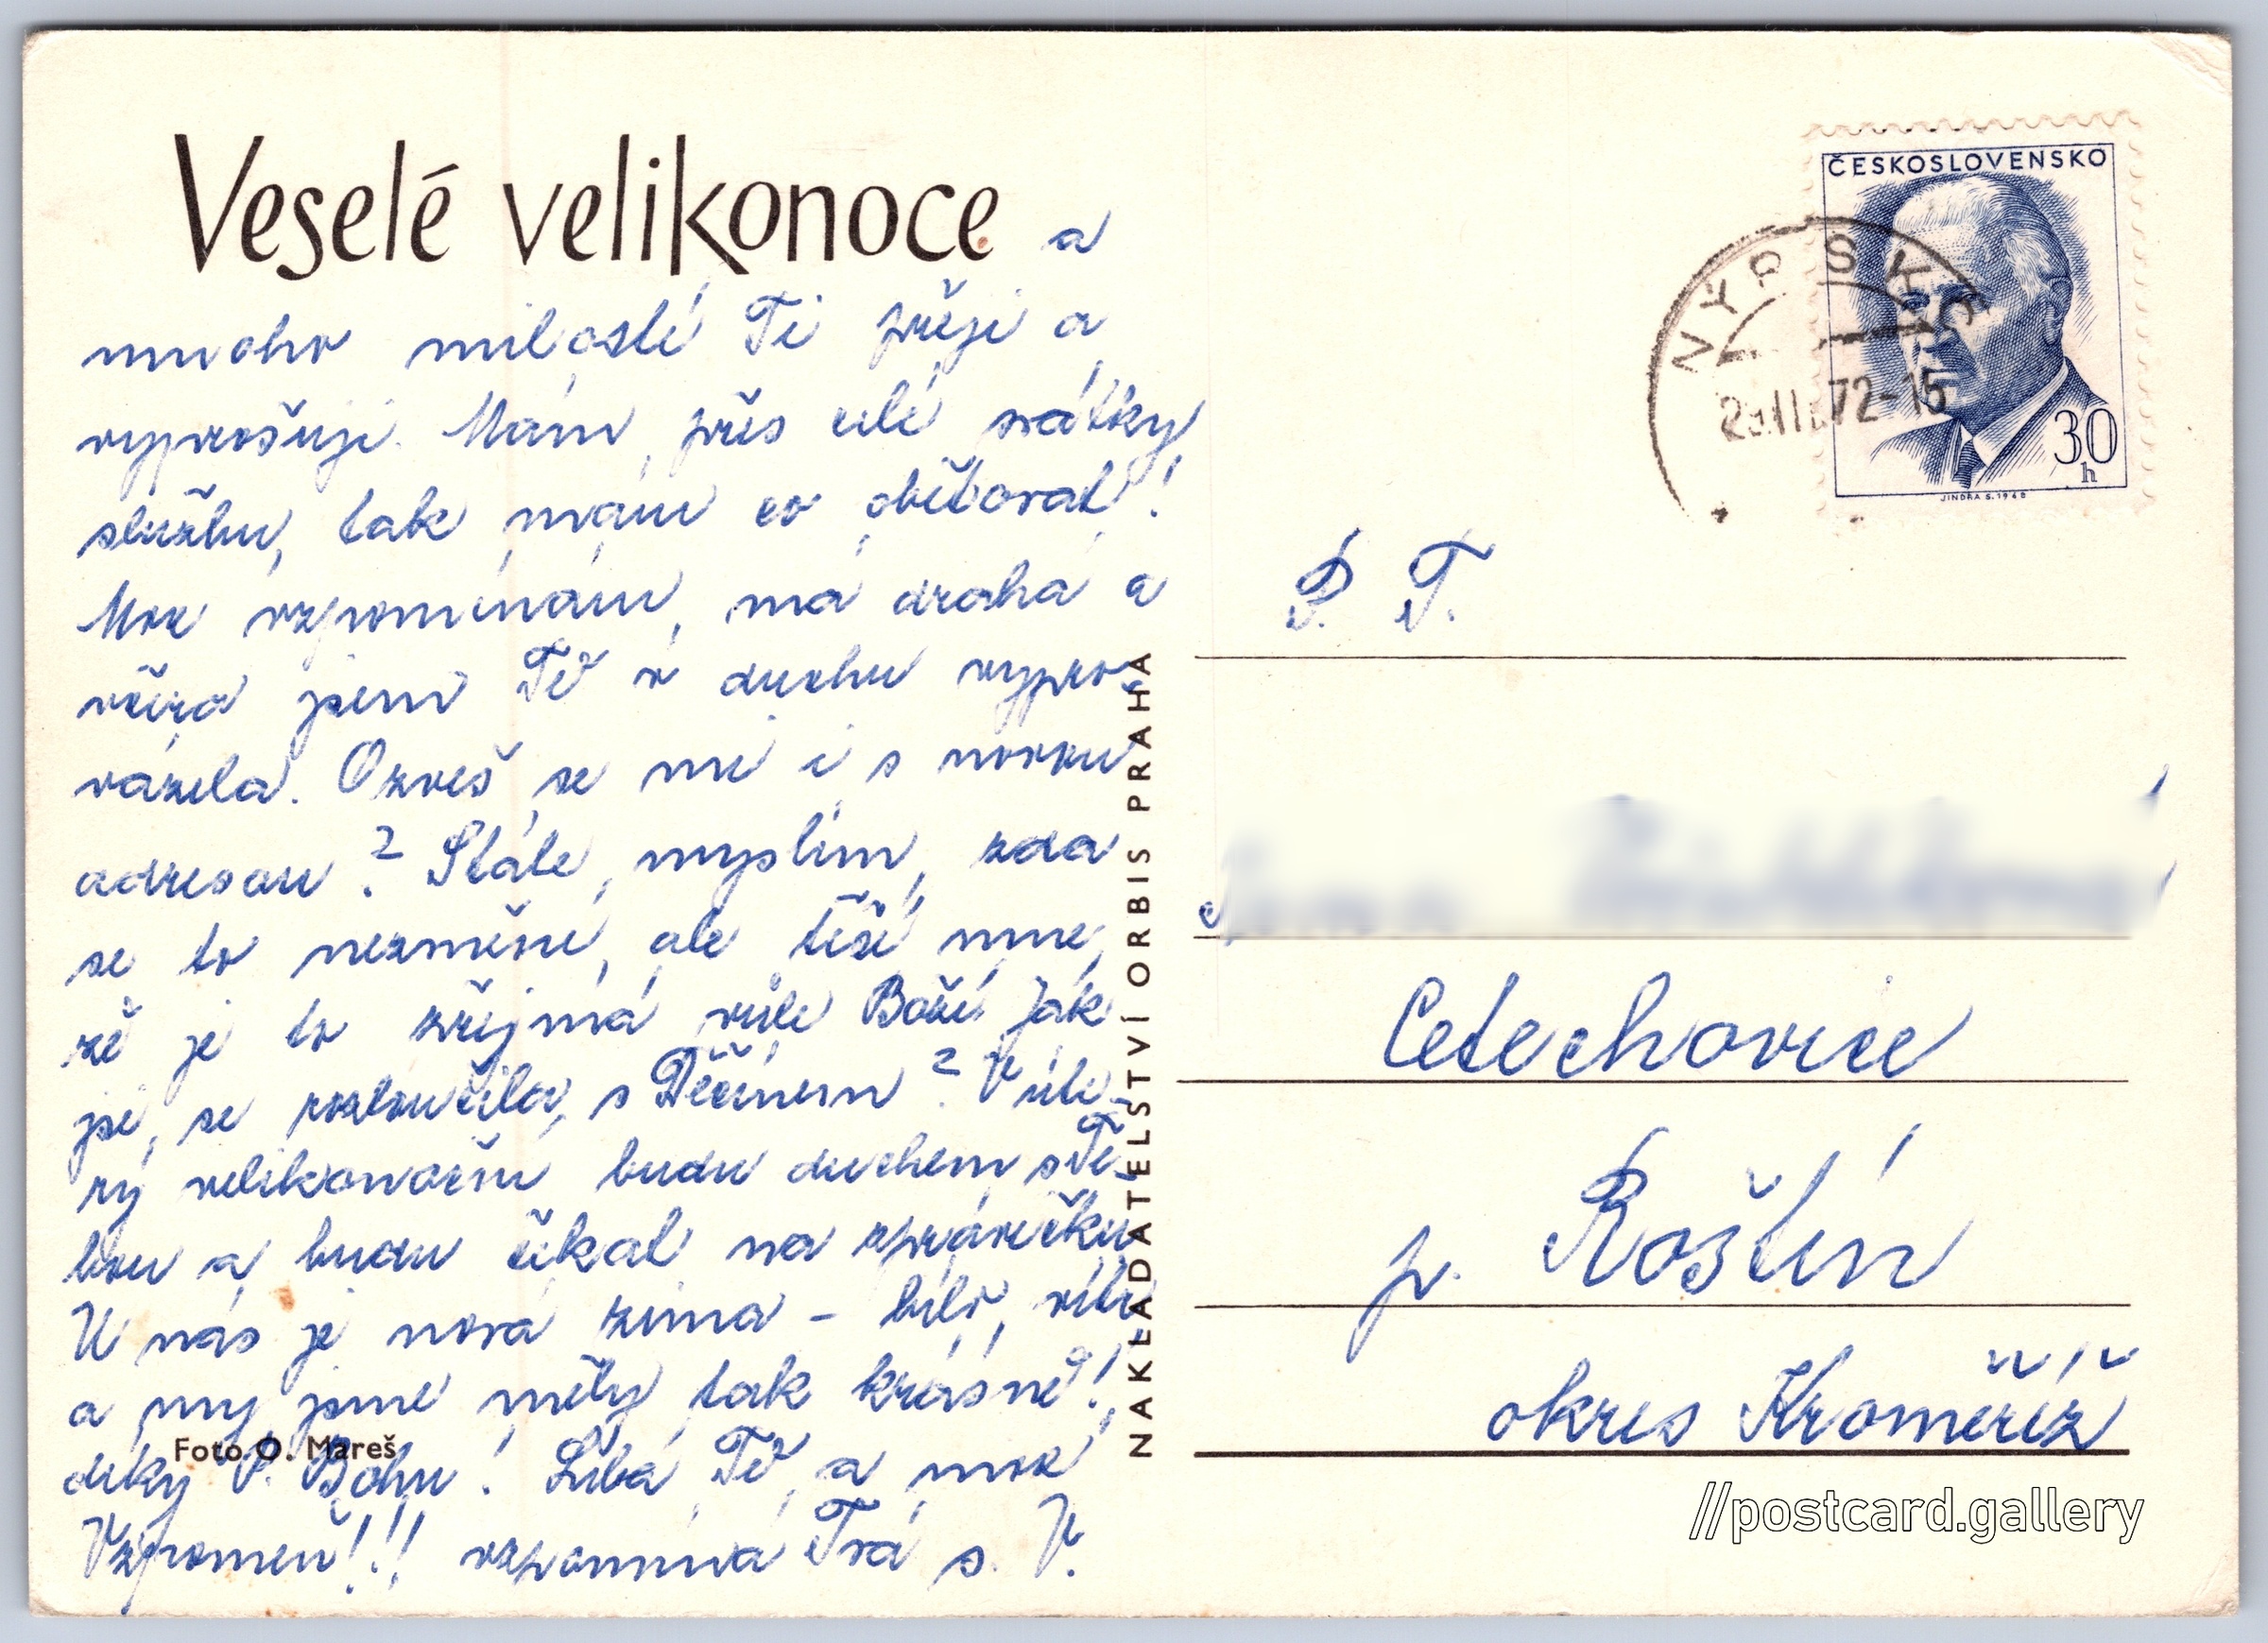 Veselé velikonoce a
mnoho milostí Ti přeji a
vyprošuji. Mám přes celé svátky
službu, tak mám co obětovat!
Moc vzpomínám, má drahá a
včera jsem Tě v duchu vypro-
vázela. Ozveš se mi i s novou
adresou? Stále myslím, zda
se to nezmění, ale těší mne,
že je to zřejmá vůle Boží. Jak
jsi se rozloučila s Děčínem? V úte-
rý velikonoční budu duchem s Te-
bou a budu čekat na zprávičku.
U nás je nová zima - bílo, všude
a my jsme měly tak krásně!
díky P. Bohu! Líbá Tě a moc
Vzpomeň!!! vzpomíná Tvá s. V.
Foto O. Mareš
NAKLADATELSTVÍ ORBIS PRAHA
ČESKOSLOVENSKO
30
h
JINDRA S. 1968
NÝRSKO
72-15
P. T.
Cetechovice
p. Roštín
okres Kroměříž
//postcard.gallery